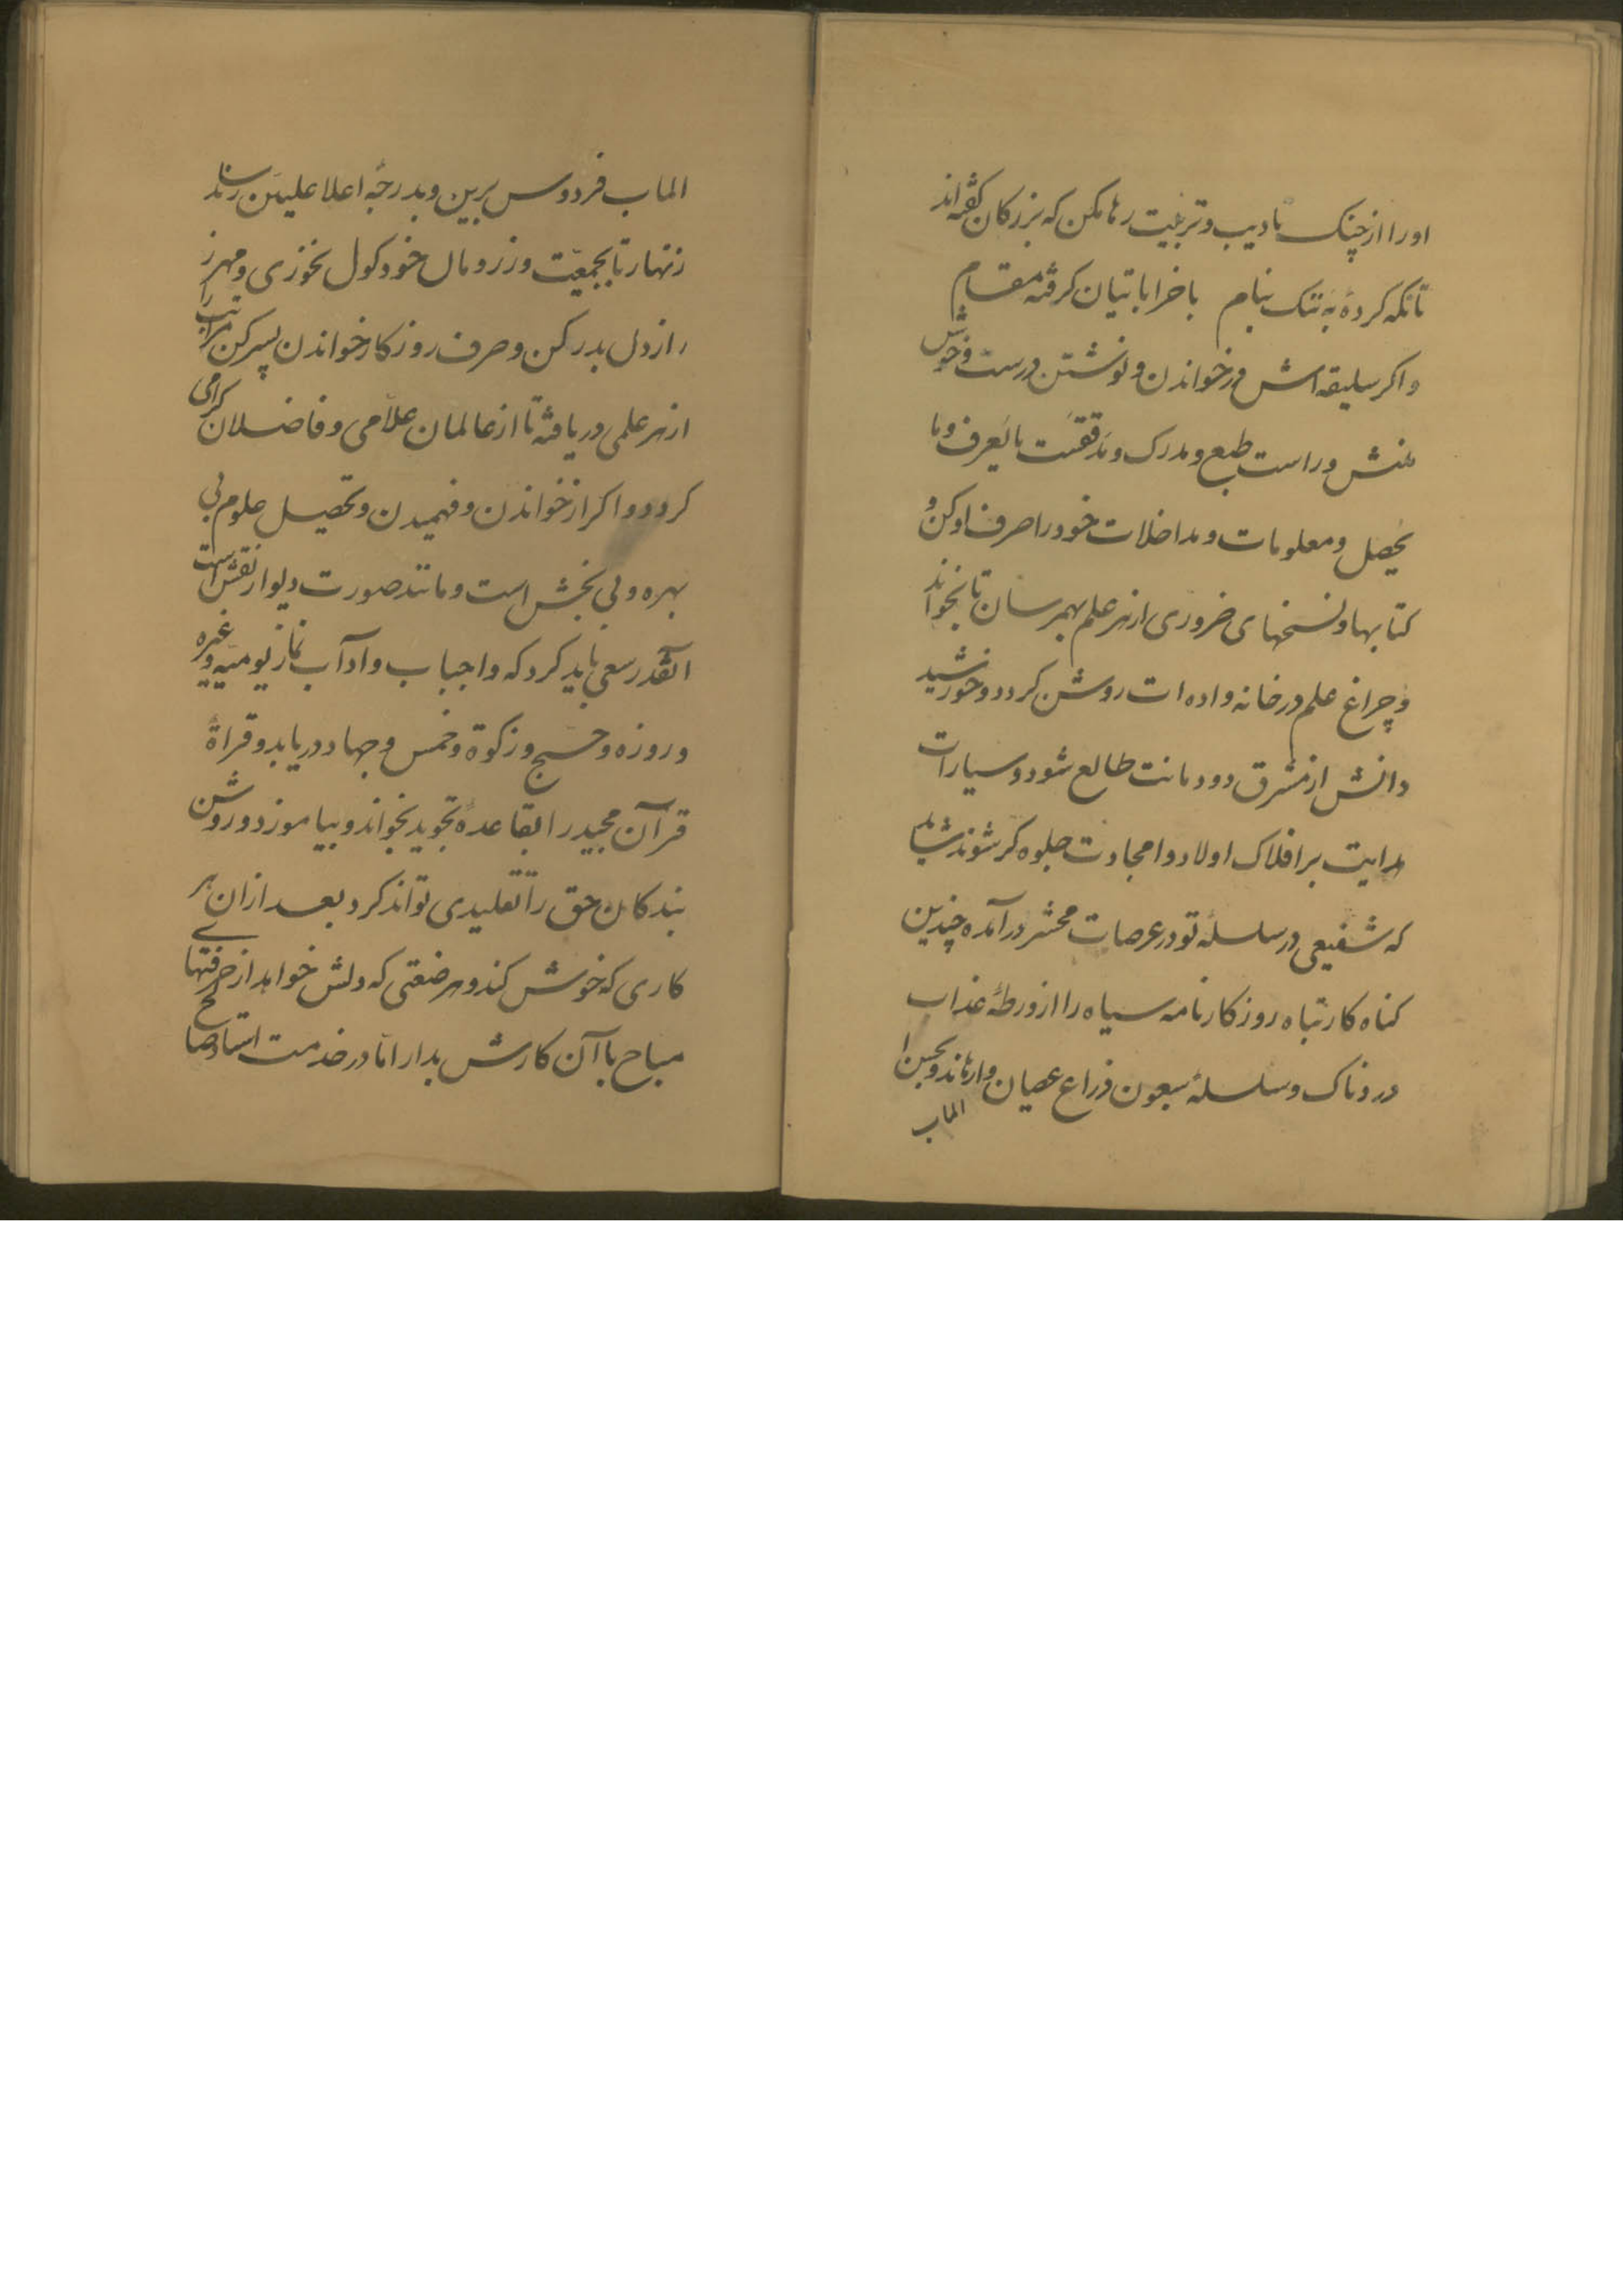 اورا از چنک تادیب و تربیت رها مکن که بزرکان گفته‌اند
تا نکه کردهٔ به ننک بنام باخراباتیان کرفته مقام
واکر سلیقه اش در خواندن و نوشتن درست و خوش
منش و راست طبع و مدرک و مدققست بالعرف وبا
یحصل و معلومات و مداخلات خود را صرف او کن و
کتابها و نسخهای ضروری از هر علم بهمرسان تا بخواند
و چراغ علم در خانه واده ات روشن کردد و خورشید
دانش از مشرق دودمانت طالع شود و سیارات
هدایت بر افلاک اولاد و امجادت جلوه کر شوند شاید
که شفیعی در سلسلهٔ تو در عرصات محشر درآمده چندین
کناه کار تباه روزکار نامه سیاه را از ورطهٔ عذاب
دردناک و سلسلهٔ سبعون ذراع عصیان وارهاند و بحسن ا
الماب
الماب فردوس برین و بدرجهٔ اعلا علیین رساند
زنهار تا بجمعیت و زر و مال خود کول نخوری و مهر زر
را از دل بدر کن و صرف روزکار خواندن پسر کن مراتب را
از هر علمی دریافته تا از عالمان علامی و فاضلان کرامی
کردد و اکر از خواندن و فهمیدن و تحصیل علوم بی
بهره و بی بخش است و مانند صورت دیوار نقش است
آنقدر سعی باید کرد که واجباب و آداب نماز یومیه و غیره
و روزه و حج و زکوة و خمس و جهاد دریابد و قراة
قرآن مجید را بقاعدهٔ تجوید بخواند و بیاموزد و روش
بندکان حق را تقلیدی تواند کرد بعد از ان هر
کاری که خوش کند و هر صنعتی که دلش خواهد از حرفتهای
مباح با آن کارش بدار اما در خدمت استاد صالح